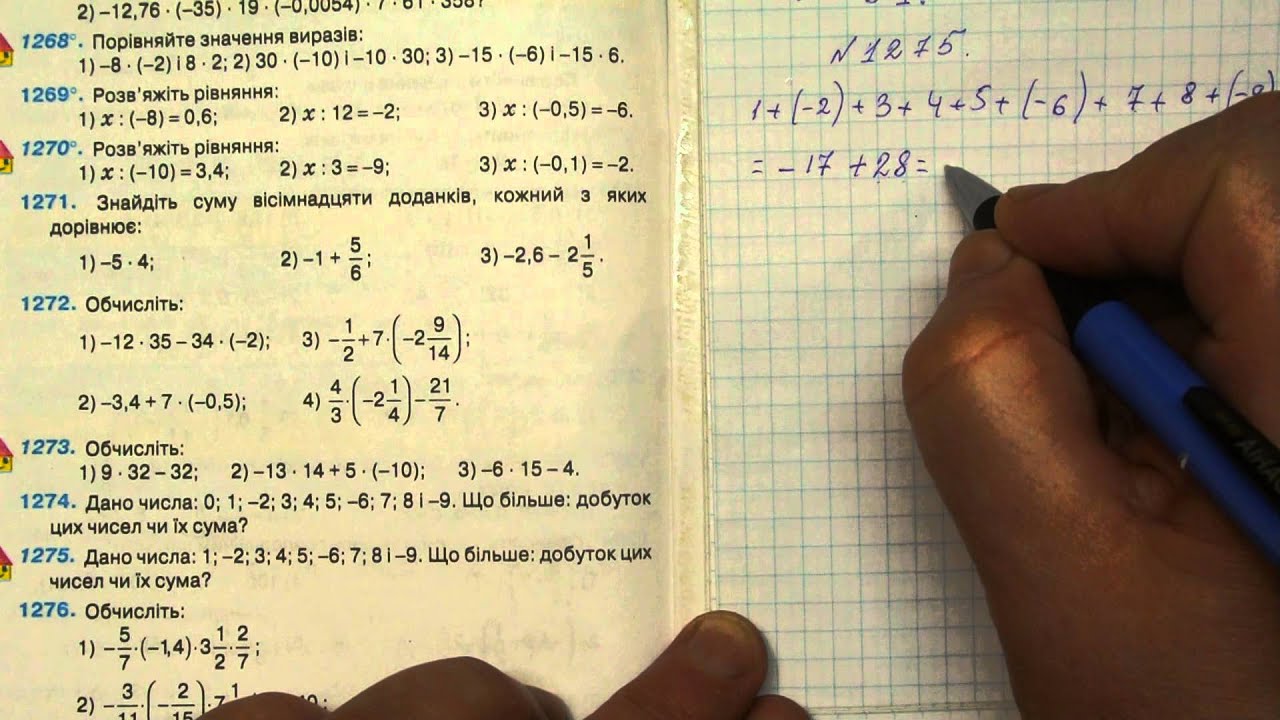 2) –12,76 · (–35) · 19 · (–0,0054) · 7 · 61 · 358?
1268°. Порівняйте значення виразів:
1) –8 · (–2) і 8 · 2; 2) 30 · (–10) і –10 · 30; 3) –15 · (–6) і –15 · 6.
1269°. Розв'яжіть рівняння:
1) x : (–8) = 0,6; 2) x : 12 = –2; 3) x : (–0,5) = –6.
1270°. Розв'яжіть рівняння:
1) x : (–10) = 3,4; 2) x : 3 = –9; 3) x : (–0,1) = –2.
1271. Знайдіть суму вісімнадцяти доданків, кожний з яких
дорівнює:
1) –5 · 4; 2) –1 + 5/6; 3) –2,6 – 2 1/5.
1272. Обчисліть:
1) –12 · 35 – 34 · (–2); 3) –1/2 + 7 · (–2 9/14);
2) –3,4 + 7 · (–0,5); 4) 4/3 · (–2 1/4) – 21/7.
1273. Обчисліть:
1) 9 · 32 – 32; 2) –13 · 14 + 5 · (–10); 3) –6 · 15 – 4.
1274. Дано числа: 0; 1; –2; 3; 4; 5; –6; 7; 8 і –9. Що більше: добуток
цих чисел чи їх сума?
1275. Дано числа: 1; –2; 3; 4; 5; –6; 7; 8 і –9. Що більше: добуток цих
чисел чи їх сума?
1276. Обчисліть:
1) –5/7 · (–1,4) · 3 1/2 · 2/7;
2) –3/11 · (–2/15) · 7
№1275.
1 + (-2) + 3 + 4 + 5 + (-6) + 7 + 8 + (-9)
= -17 + 28 =